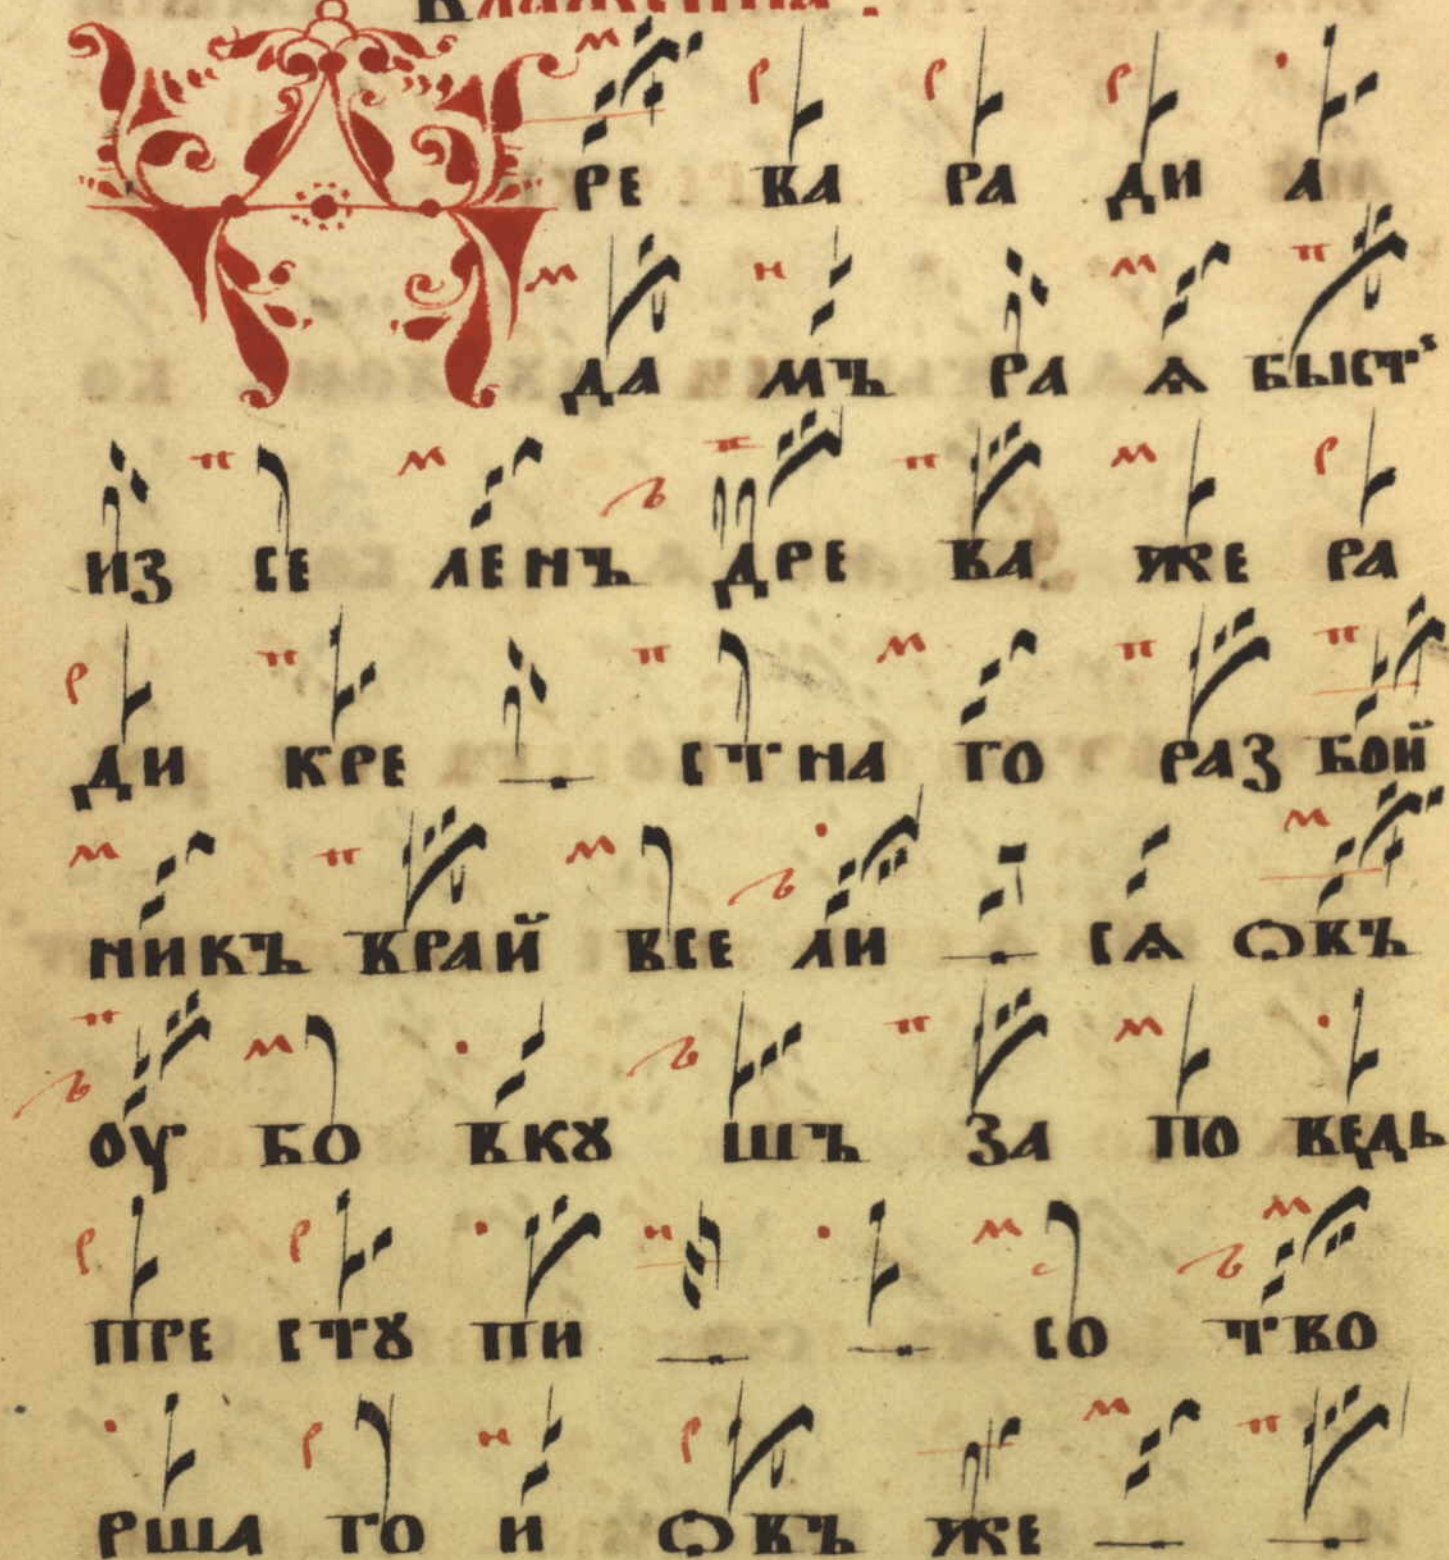 Блаженна.
Д РЕ ВА РА ДИ А
ДА МЪ РА Ѧ БЫСТЬ
ИЗ СЕ ЛЕНЪ ДРЕ ВА ЖЕ РА
ДИ КРЕ — СТНА ГО РАЗ БОЙ
НИКЪ ВРАЙ ВСЕ ЛИ — СѦ ѺВЪ
ОУ БО ВКꙋ ШЪ ЗА ПО ВЕДЬ
ПРЕ СТꙋ ПИ — — СО ТВО
РША ГО И ѺВЪ ЖЕ — —